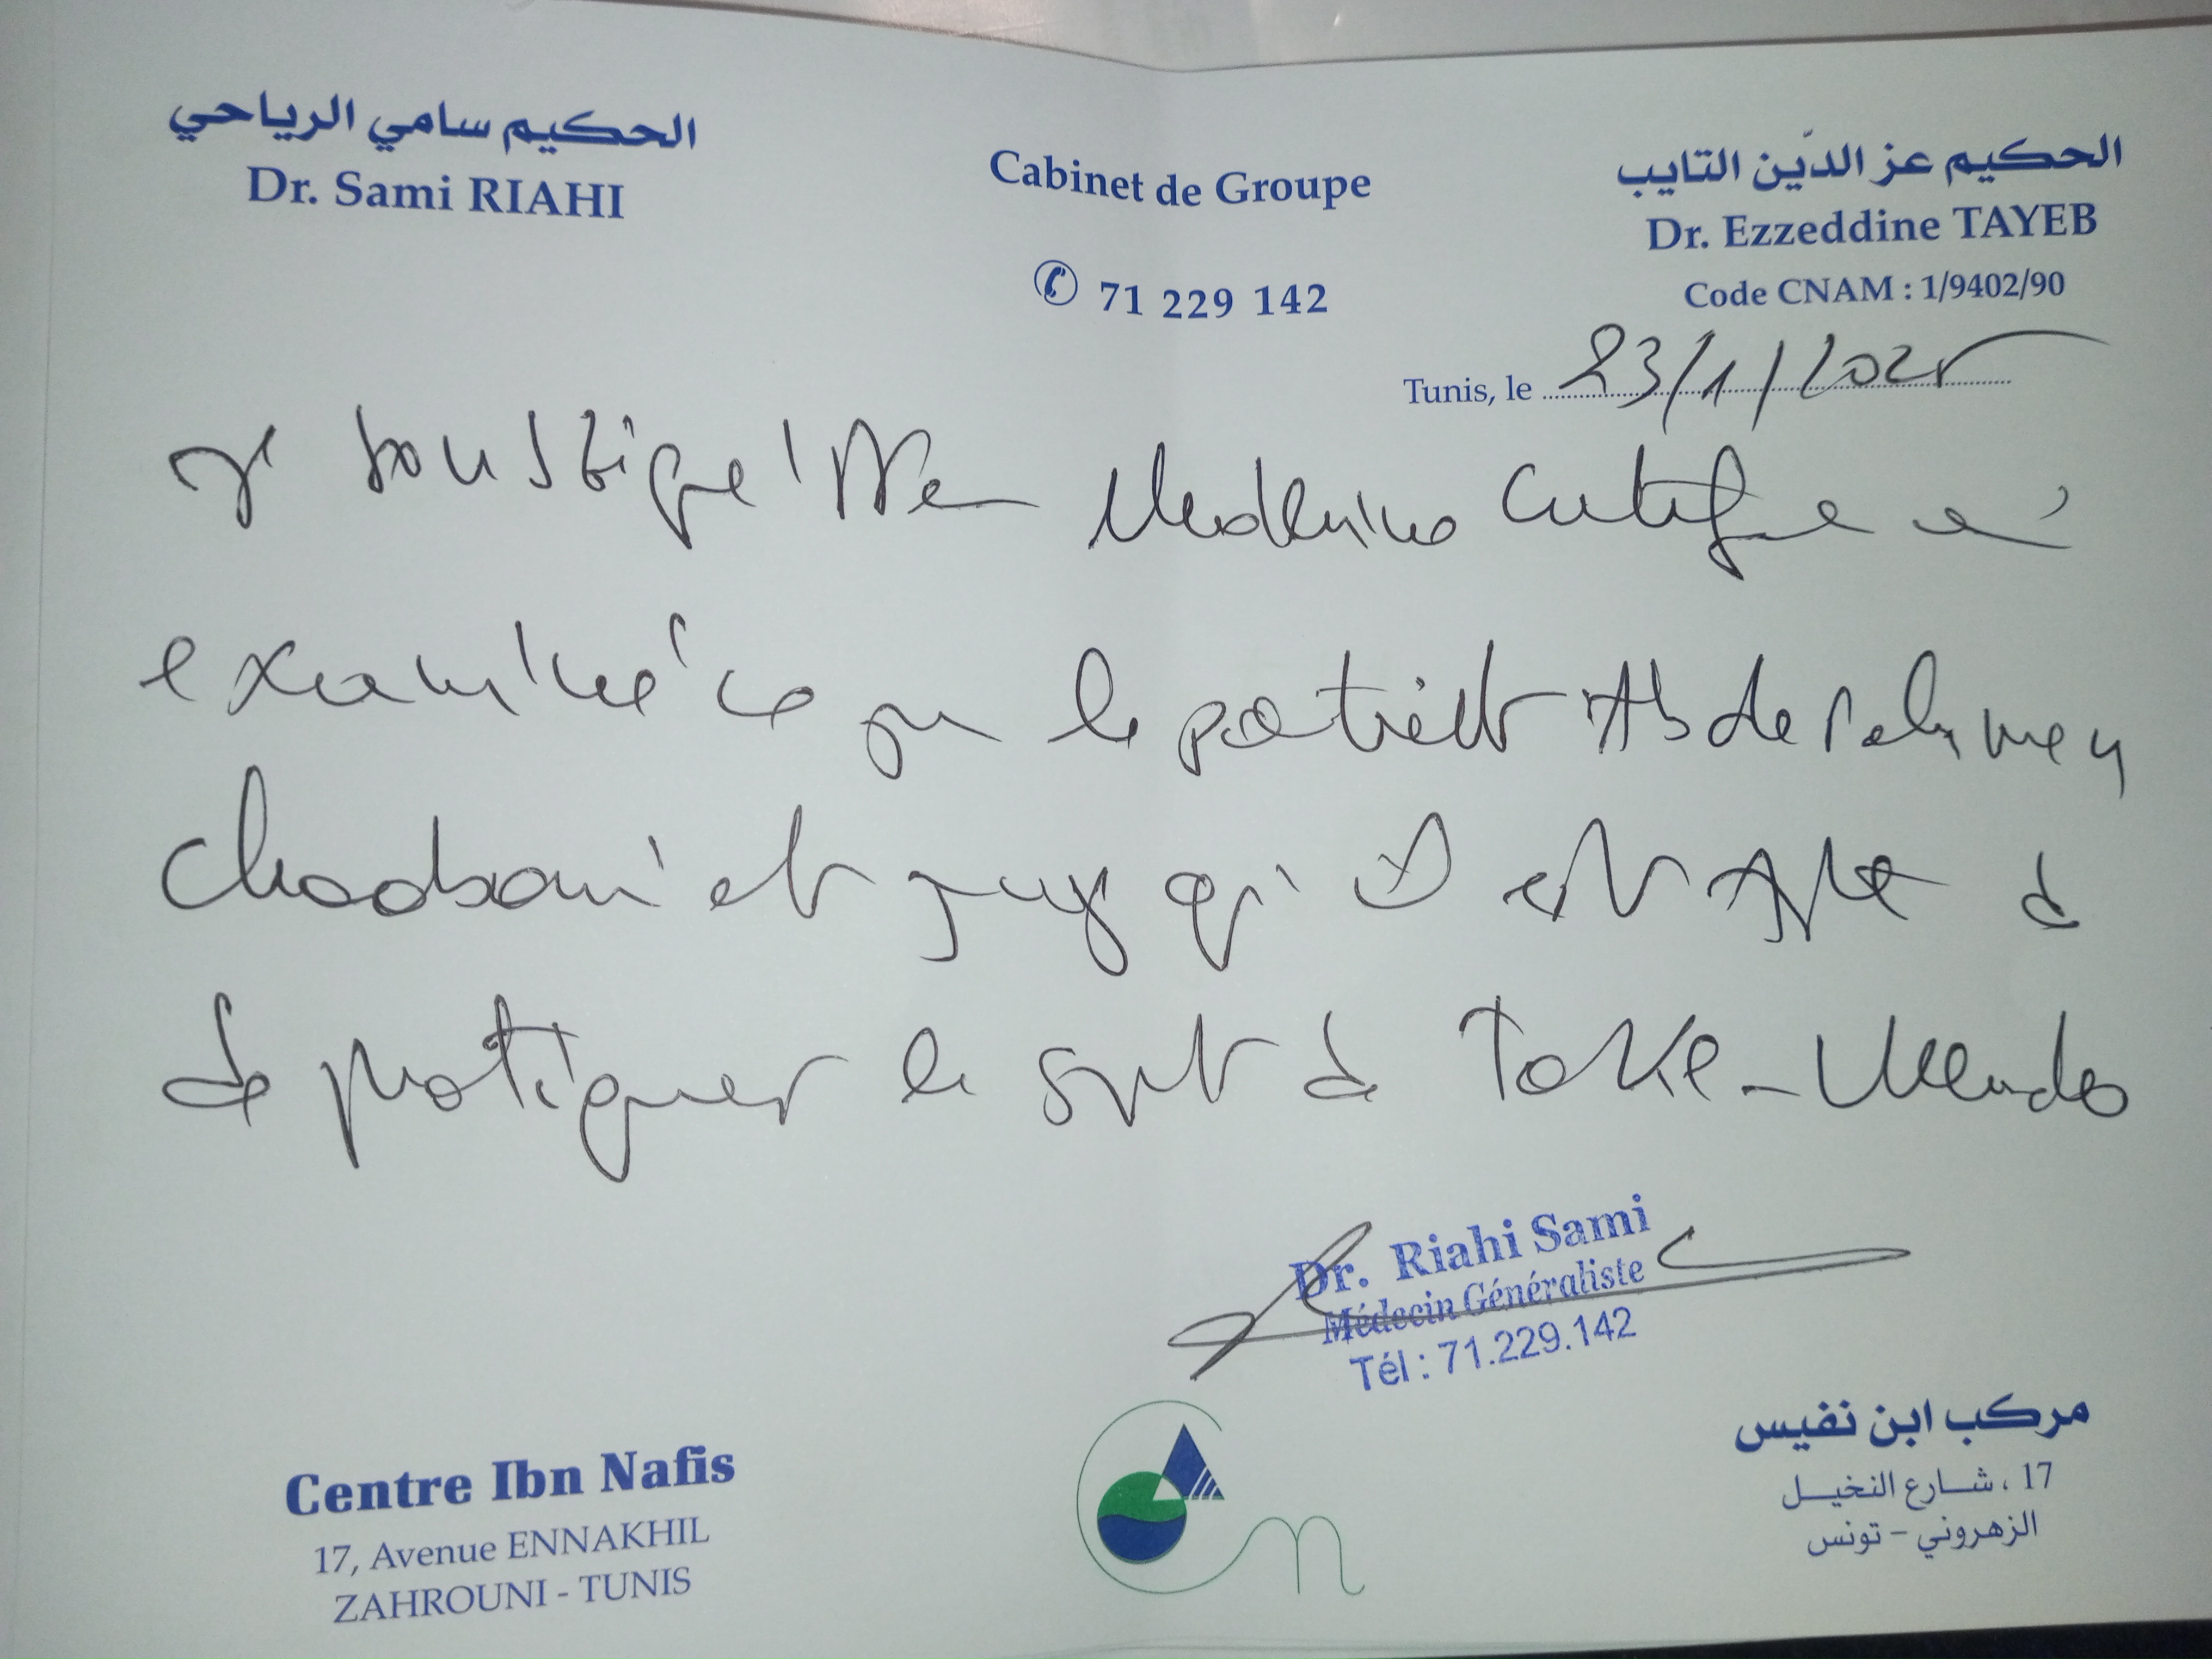 الحكيم سامي الرياحي
Dr. Sami RIAHI
Cabinet de Groupe
71 229 142
الحكيم عز الدّين التايب
Dr. Ezzeddine TAYEB
Code CNAM : 1/9402/90
Tunis, le 23/1/2025
Je soussigné Dr en Médecine certifie avoir
examiné ce jour le patient Abderahmen
Chaabani et juge qu'il est Apte à
de pratiquer le sport de Take-Wendo
Dr. Riahi Sami
Médecin Généraliste
Tél : 71.229.142
Centre Ibn Nafis
17, Avenue ENNAKHIL
ZAHROUNI - TUNIS
مركب ابن نفيس
17 ، شارع النخيل
الزهروني - تونس